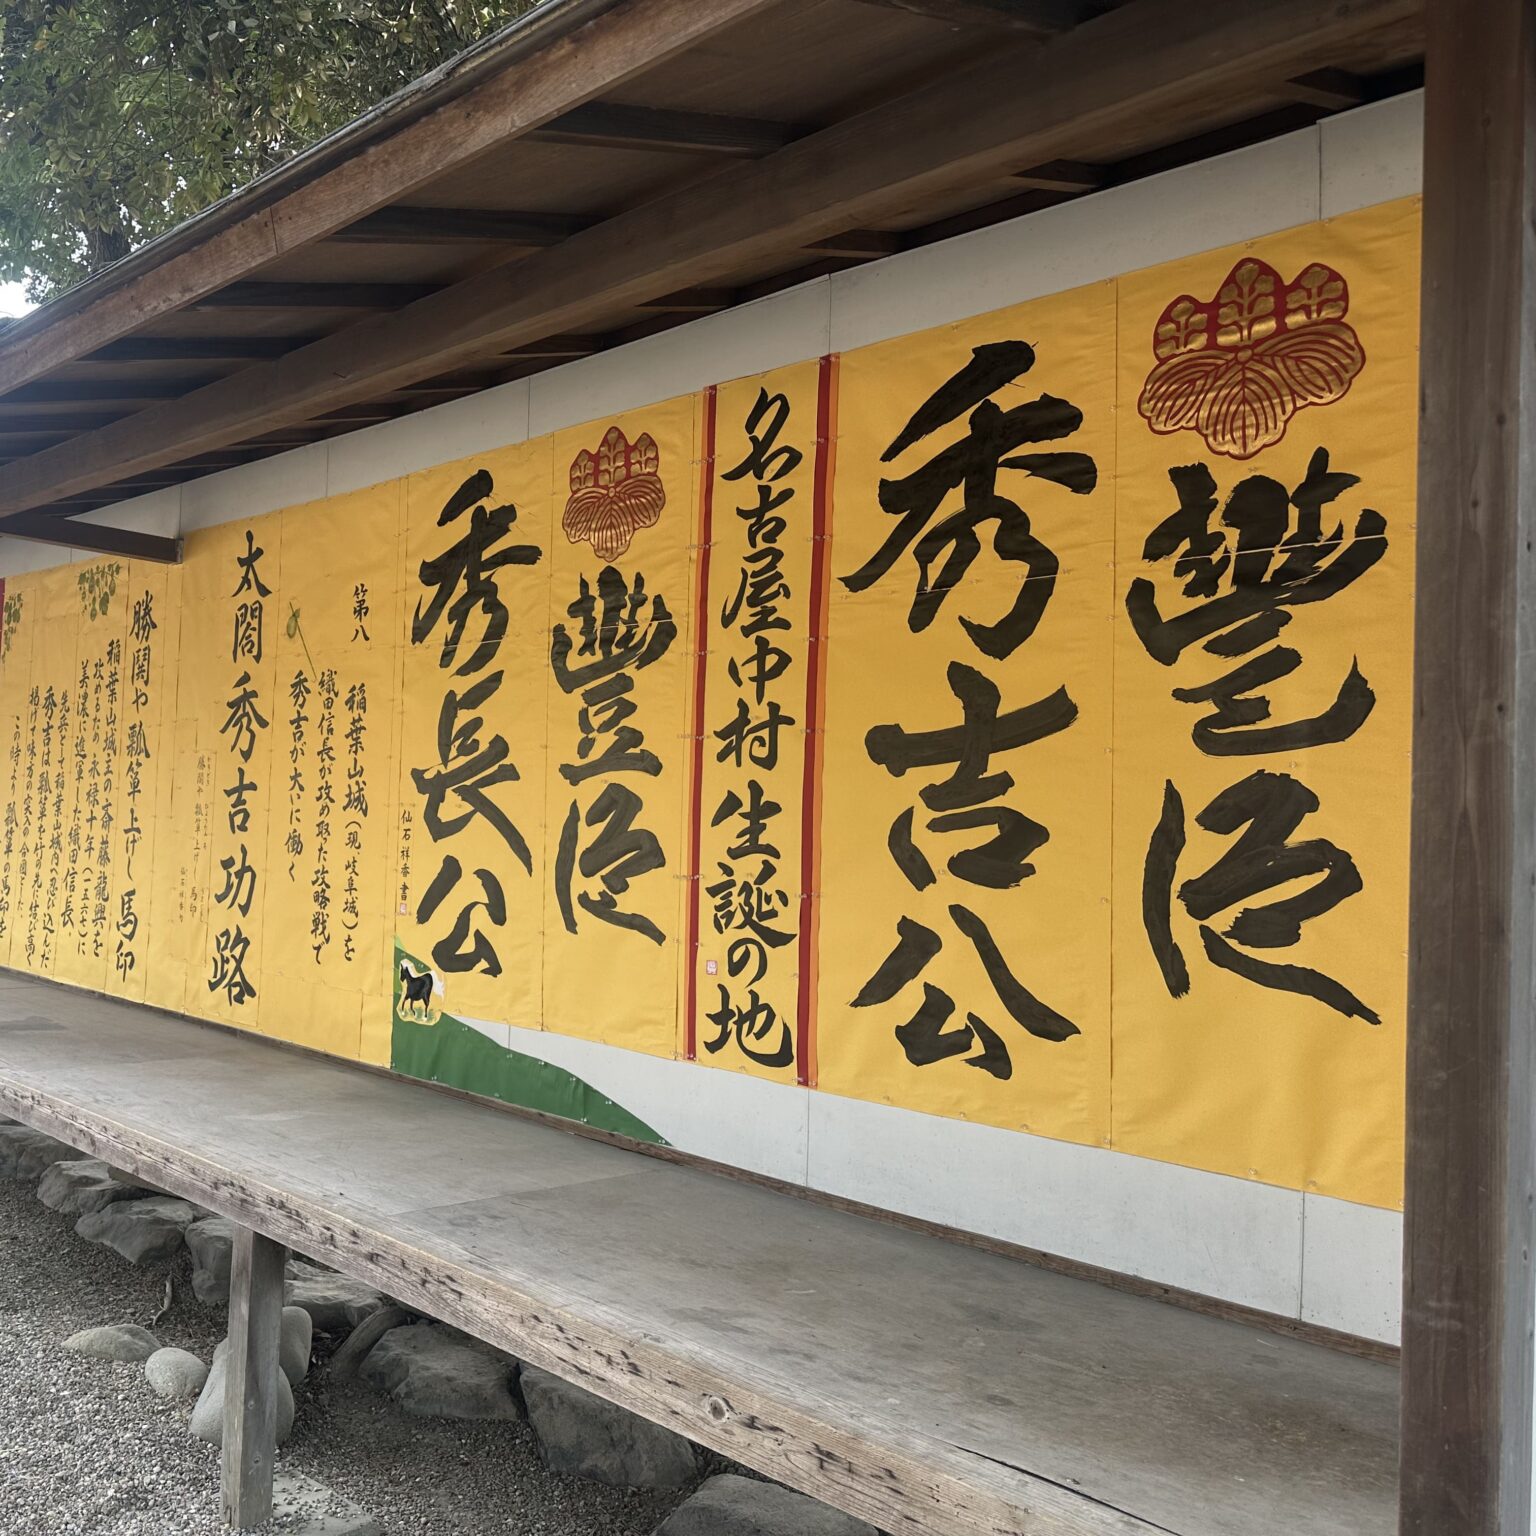 豐臣
秀吉公
名古屋中村生誕の地
豐臣
秀長公
仙石祥香書
第八
稲葉山城(現、岐阜城)を
織田信長が攻め取た攻略戦で
秀吉が大いに働く
太閤秀吉功路
勝鬨や瓢箪上げし馬印
稲葉山城主の斎藤龍興を
攻めるため、永禄十年(一五六七)に
美濃に進軍した織田信長、
先兵として稲葉山城内へ忍び込んだ
秀吉は瓢箪を竹の先に結び高く
掲げて味方の突入の合図とした。
この時より瓢箪の馬印を